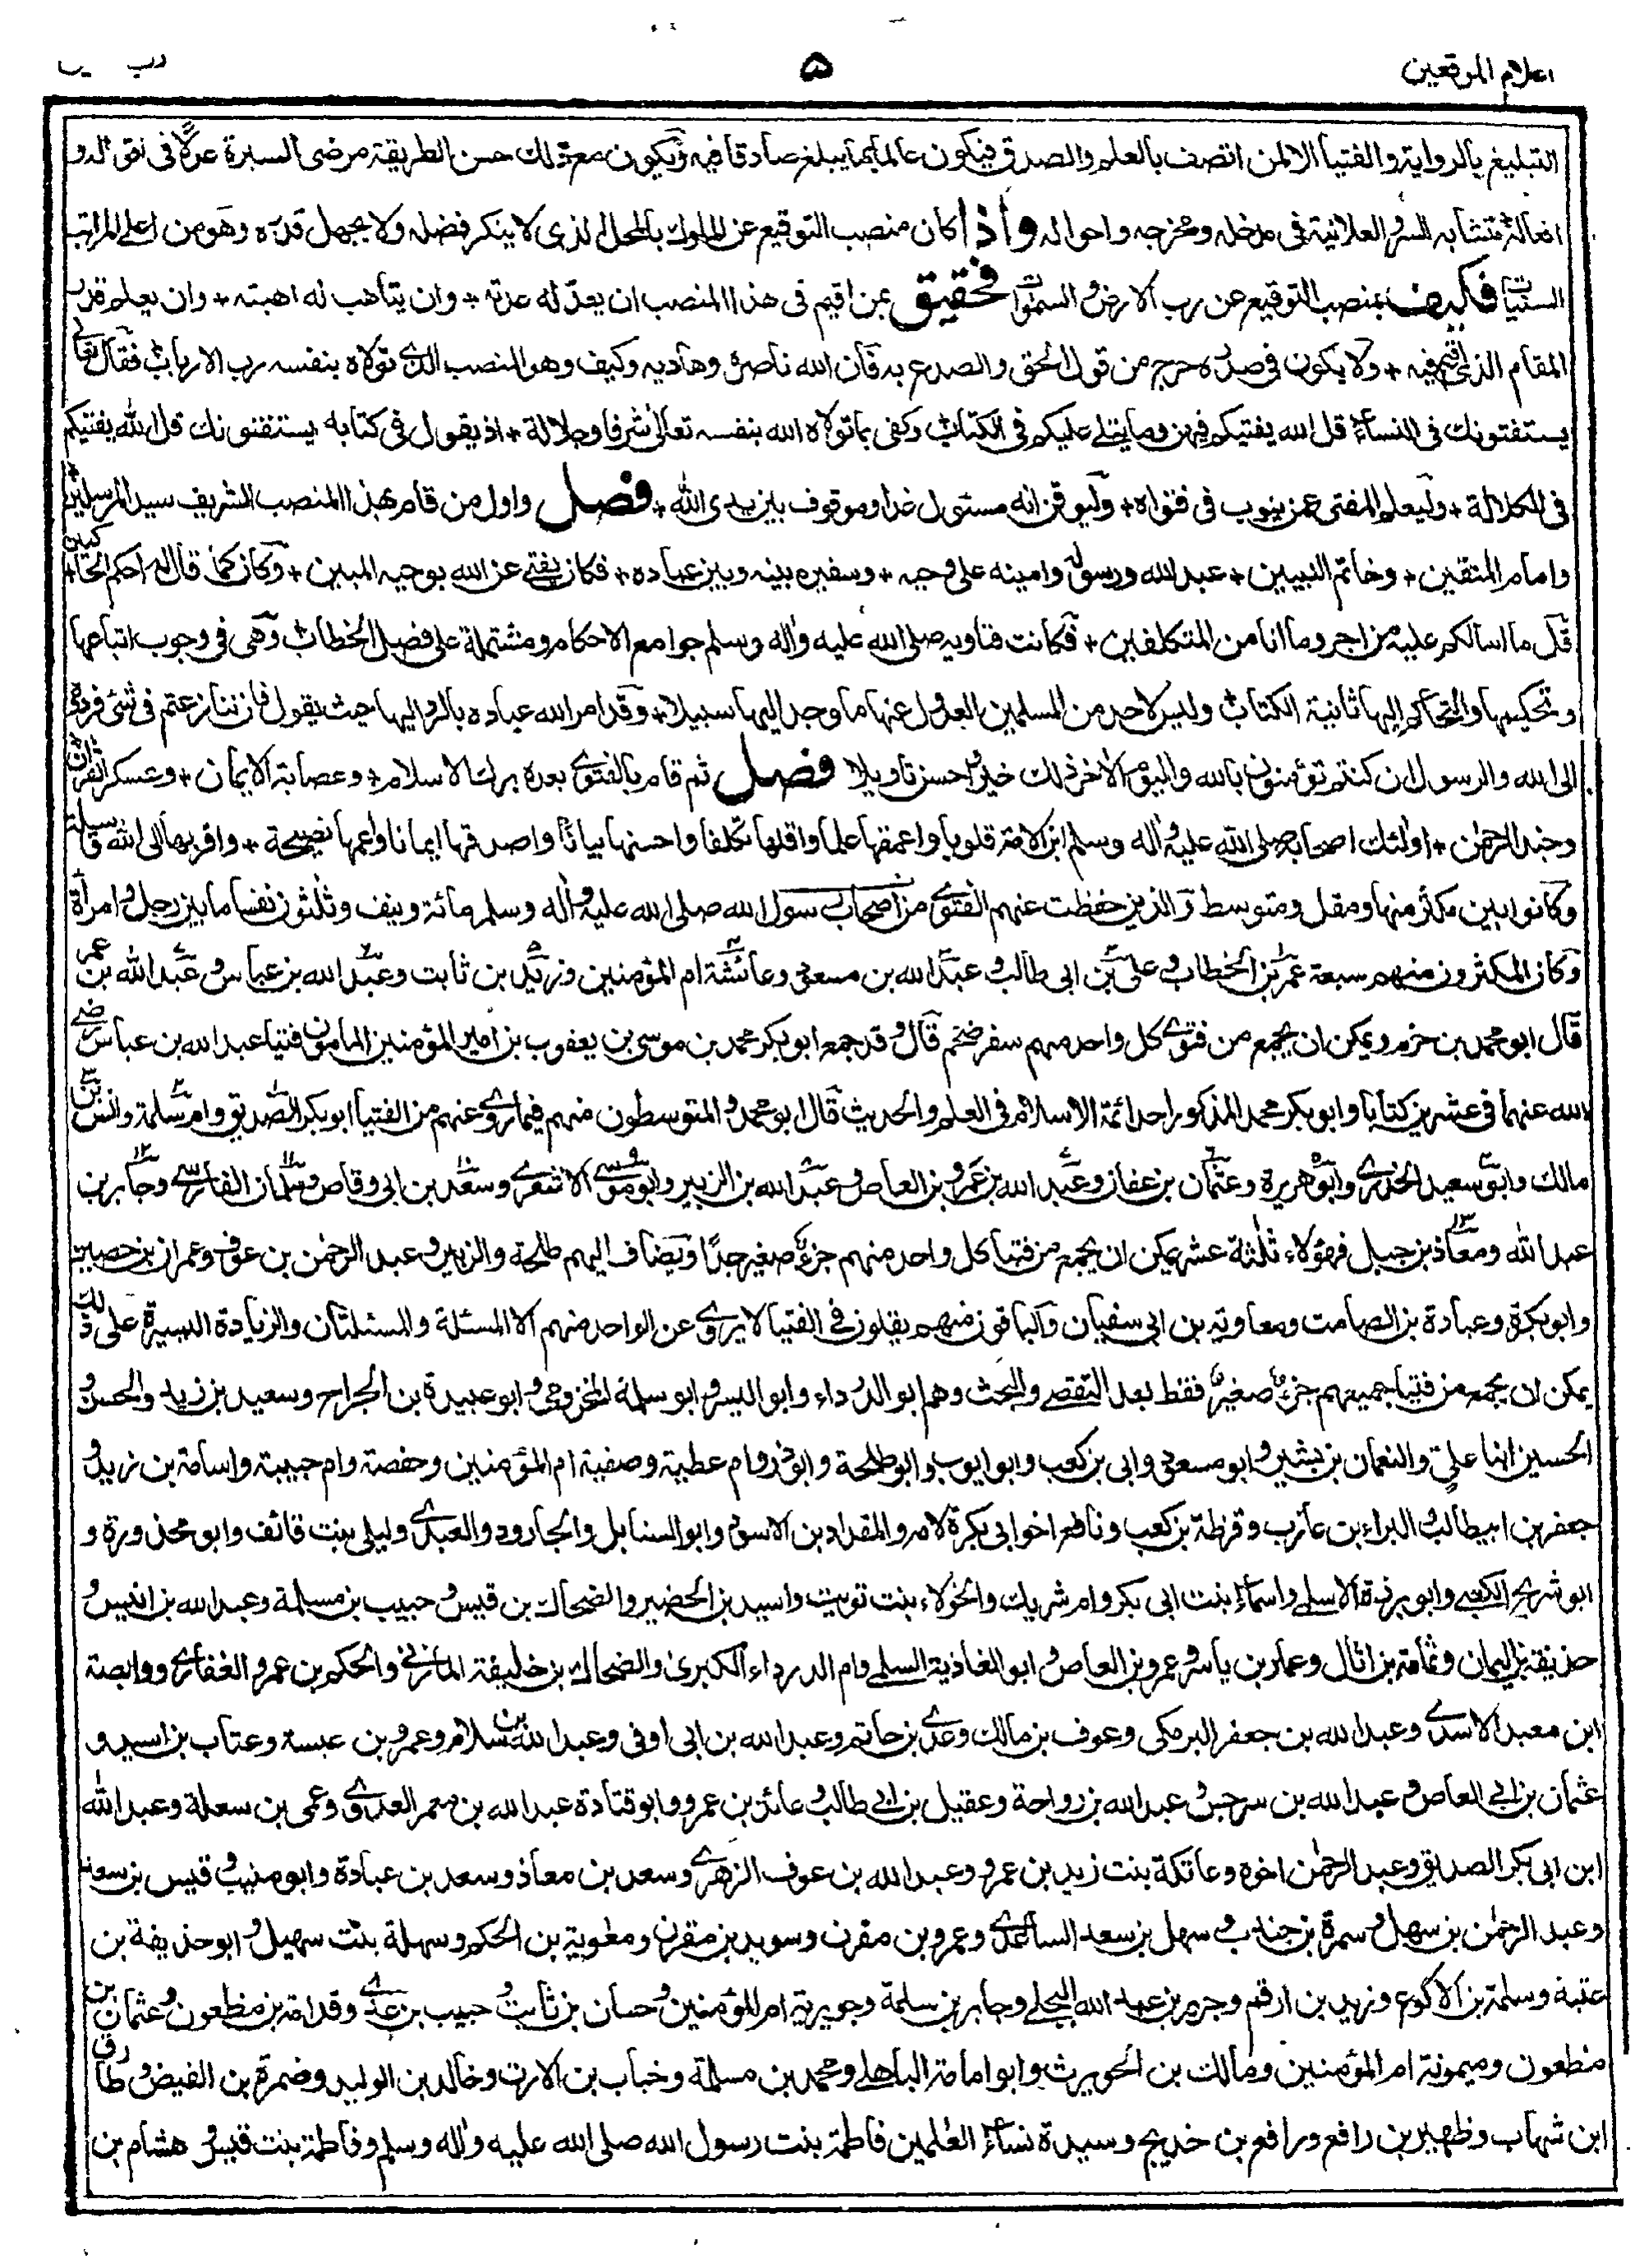 اعلام الموقعين
۵
التبليغ بالرواية والفتيا الا لمن اتصف بالعلم والصدق فيكون عالما بما يبلغ صادقا فيه ويكون مع ذلك حسن الطريقة مرضى السيرة عدلا فى اقواله و
افعاله متشابه السر والعلانية فى مدخله ومخرجه واحواله واذا كان منصب التوقيع عن الملوك بالمحل الذى لا ينكر فضله ولا يجهل قدره وهو من اعلى المراتب
السنيات فكيف بمنصب التوقيع عن رب الارض والسموات فحقيق بمن اقيم فى هذا المنصب ان يعد له عدته + وان يتأهب له اهبته + وان يعلم قدر
المقام الذى اقيم فيه + ولا يكون فى صدره حرج من قول الحق والصدع به فان الله ناصره وهاديه وكيف وهو المنصب الذى تولاه بنفسه رب الارباب فقال تعالى
يستفتونك فى النساء قل الله يفتيكم فيهن وما يتلى عليكم فى الكتاب وكفى بما تولاه الله بنفسه تعالى شرفا وجلالة + اذ يقول فى كتابه يستفتونك قل الله يفتيكم
فى الكلالة + وليعلم المفتى عمن ينوب فى فتواه + وليوقن انه مسئول غدا وموقوف بين يدى الله + فصل واول من قام بهذا المنصب الشريف سيد المرسلين +
وامام المتقين + وخاتم النبيين + عبد الله ورسوله وامينه على وحيه + وسفيره بينه وبين عباده + فكان يفتى عن الله بوحيه المبين + وكان كما قال له احكم الحاكمين +
قل ما اسالكم عليه من اجر وما انا من المتكلفين + فكانت فتاويه صلى الله عليه واله وسلم جوامع الاحكام ومشتملة على فصل الخطاب وهى فى وجوب اتباعها
وتحكيمها والتحاكم اليها ثانية الكتاب وليس لاحد من المسلمين العدول عنها ما وجد اليها سبيلا + وقد امر الله عباده بالرد اليها حيث يقول فان تنازعتم فى شئ فردوه
الى الله والرسول ان كنتم تؤمنون بالله واليوم الاخر ذلك خير واحسن تاويلا فصل ثم قام بالفتوى بعده برك الاسلام + وعصابة الايمان + وعسكر القران
وجند الرحمن + اولئك اصحابه صلى الله عليه واله وسلم ابر الامة قلوبا واعمقها علما واقلها تكلفا واحسنها بيانا واصدقها ايمانا واعمها نصيحة + واقربها الى الله وسيلة
وكانوا بين مكثر منها ومقل ومتوسط والذين حفظت عنهم الفتوى من اصحاب رسول الله صلى الله عليه واله وسلم مائة ونيف وثلثون نفسا ما بين رجل وامرأة
وكان المكثرون منهم سبعة عمر بن الخطاب وعلى بن ابى طالب وعبد الله بن مسعود وعائشة ام المؤمنين وزيد بن ثابت وعبد الله بن عباس وعبد الله بن عمر
قال ابو محمد بن حزم ويمكن ان يجمع من فتوى كل واحد منهم سفر ضخم قال وقد جمع ابو بكر محمد بن موسى بن يعقوب بن امير المؤمنين المامون فتيا عبد الله بن عباس رضى
الله عنهما فى عشرين كتابا وابو بكر محمد المذكور احد ائمة الاسلام فى العلم والحديث قال ابو محمد والمتوسطون منهم فيما روى عنهم من الفتيا ابو بكر الصديق وام سلمة وانس بن
مالك وابو سعيد الخدرى وابو هريرة وعثمان بن عفان وعبد الله بن عمرو بن العاص وعبد الله بن الزبير وابو موسى الاشعرى وسعد بن ابى وقاص وسلمان الفارسى وجابر بن
عبد الله ومعاذ بن جبل فهؤلاء ثلثة عشر يمكن ان يجمع من فتيا كل واحد منهم جزء صغير جدا ويضاف اليهم طلحة والزبير وعبد الرحمن بن عوف وعمران بن حصين
وابو بكرة وعبادة بن الصامت ومعاوية بن ابى سفيان والباقون منهم يقلون فى الفتيا لا يروى عن الواحد منهم الا المسئلة والمسئلتان والزيادة اليسيرة على ذلك
يمكن ان يجمع من فتيا جميعهم جزء صغير فقط بعد التقصى والبحث وهم ابو الدرداء وابو اليسر وابو سلمة المخزومى وابو عبيدة بن الجراح وسعيد بن زيد والحسن و
الحسين ابنا على والنعمان بن بشير وابو مسعود وابى بن كعب وابو ايوب وابو طلحة وابو ذر وام عطية وصفية ام المؤمنين وحفصة وام حبيبة واسامة بن زيد و
جعفر بن ابيطالب والبراء بن عازب وقرظة بن كعب ونافع اخو ابى بكرة لامه والمقداد بن الاسود وابو السنابل والجارود والعبدى وليلى بنت قائف وابو محذورة و
ابو شريح الكعبى وابو برزة الاسلمى واسماء بنت ابى بكر وام شريك والخولاء بنت تويت واسيد بن الحضير والضحاك بن قيس وحبيب بن مسلمة وعبد الله بن انيس و
حذيفة بن اليمان وثمامة بن اثال وعمار بن ياسر وعمرو بن العاص وابو الغادية السلمى وام الدرداء الكبرى والضحاك بن خليفة المازنى والحكم بن عمرو الغفارى ووابصة
ابن معبد الاسدى وعبد الله بن جعفر البرمكى وعوف بن مالك وعدى بن حاتم وعبد الله بن ابى اوفى وعبد الله بن سلام وعمرو بن عبسة وعتاب بن اسيد و
عثمان بن ابى العاص وعبد الله بن سرجس وعبد الله بن رواحة وعقيل بن ابى طالب وعائذ بن عمرو وابو قتادة عبد الله بن معمر العدوى وعمى بن سعلة وعبد الله
ابن ابى بكر الصديق وعبد الرحمن اخوه وعاتكة بنت زيد بن عمرو وعبد الله بن عوف الزهرى وسعد بن معاذ وسعد بن عبادة وابو منيب وقيس بن سعد
وعبد الرحمن بن سهل وسمرة بن جندب وسهل بن سعد الساعدى وعمرو بن مقرن وسويد بن مقرن ومعوية بن الحكم وسهلة بنت سهيل وابو حذيفة بن
عتبة وسلمة بن الاكوع وزيد بن ارقم وجرير بن عبد الله البجلى وجابر بن سلمة وجويرية ام المؤمنين وحسان بن ثابت وحبيب بن عدى وقدامة بن مظعون وعثمان بن
مظعون وميمونة ام المؤمنين ومالك بن الحويرث وابو امامة الباهلى ومحمد بن مسلمة وخباب بن الارت وخالد بن الوليد وضمرة بن الفيض وطارق
ابن شهاب وظهير بن رافع ورافع بن خديج وسيدة نساء العلمين فاطمة بنت رسول الله صلى الله عليه واله وسلم وفاطمة بنت قيس وهشام بن